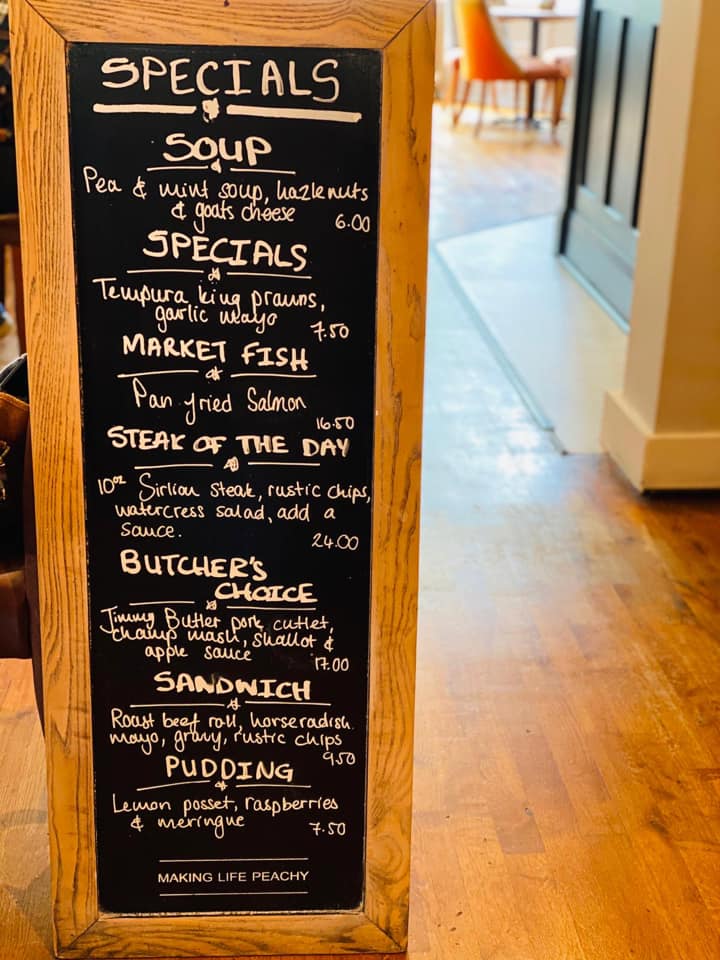 SPECIALS
SOUP
Pea & mint soup, hazlenuts
& goats cheese
6.00
SPECIALS
Tempura king prawns,
garlic mayo
7.50
MARKET FISH
Pan fried Salmon
16.50
STEAK OF THE DAY
10oz Sirlion Steak, rustic chips,
watercress salad, add a
sauce.
24.00
BUTCHER'S
CHOICE
Jimmy Butler pork cutlet,
champ mash, shallot &
apple sauce
17.00
SANDWICH
Roast beef roll, horseradish
mayo, gravy, rustic chips
9.50
PUDDING
Lemon posset, raspberries
& meringue
7.50
MAKING LIFE PEACHY